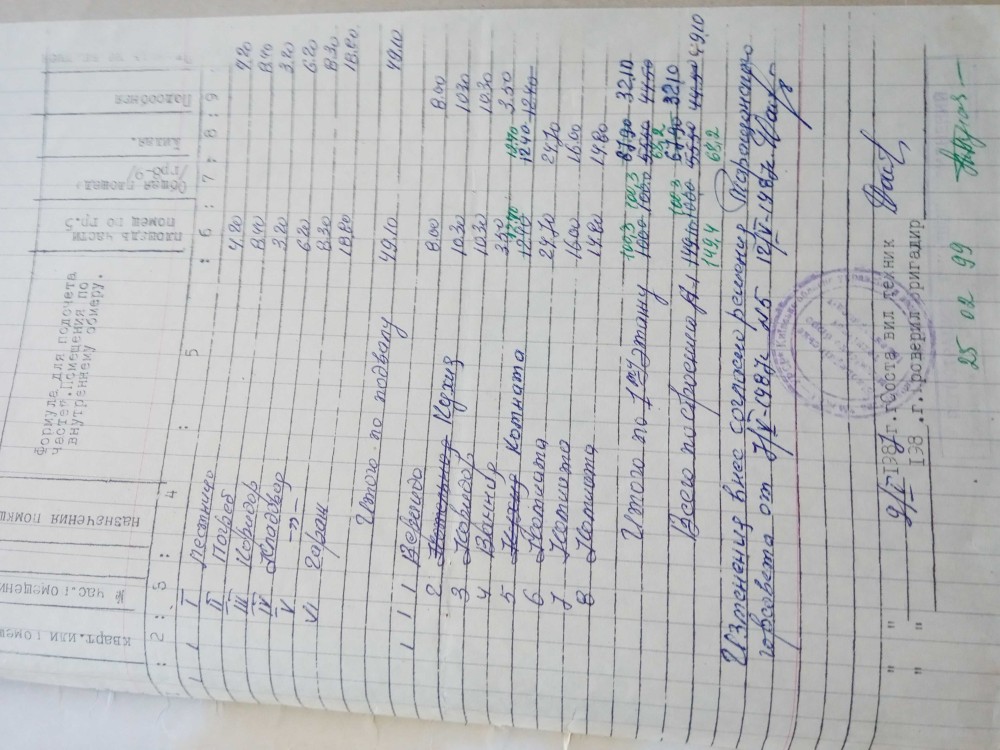 кварт.или помещ
№ час.помещения
назначения помещ
Формула для подсчета
частей.помещения по
внутреннему обмеру.
площадь части
помещ по гр.5
Общая площад.
/гр8-9/
Жилая.
Подсобная
1 : 2 : 3 : 4 : 5 : 6 : 7 8 9
1 I Лестница 4.20 4.20
II Погреб 8.40 8.40
III Коридор 3.20 3.20
IV Кладовая 6.20 6.20
V -»- 8.30 8.30
VI Гараж 18.80 18.80
Итого по подвалу 49.10 49.10
1 1 1 Веранда 8.00 8.00
2 Комната Кухня 10.30 10.30
3 Коридор 10.30 10.30
4 Ванная 3.50 3.50
5 Кухня Комната 12.40 12.40 12.40
6 Комната 24.70 24.70
7 Комната 16.00 16.00
8 Комната 14.80 14.80
Итого по 1му этажу 100,3 100.0 100,3 100.0 67.90 32.10
68,2
Всего по строению А,1 149.10 100,3 67.90 32.10 49,10
149,4 68,2
Изменения внес согласно решения
горсовета от 7/V-1987г №5 12/V-1987г
" 9/V 1987 г.Составил техник
" 198 .г.Проверил бригадир
25 02 99